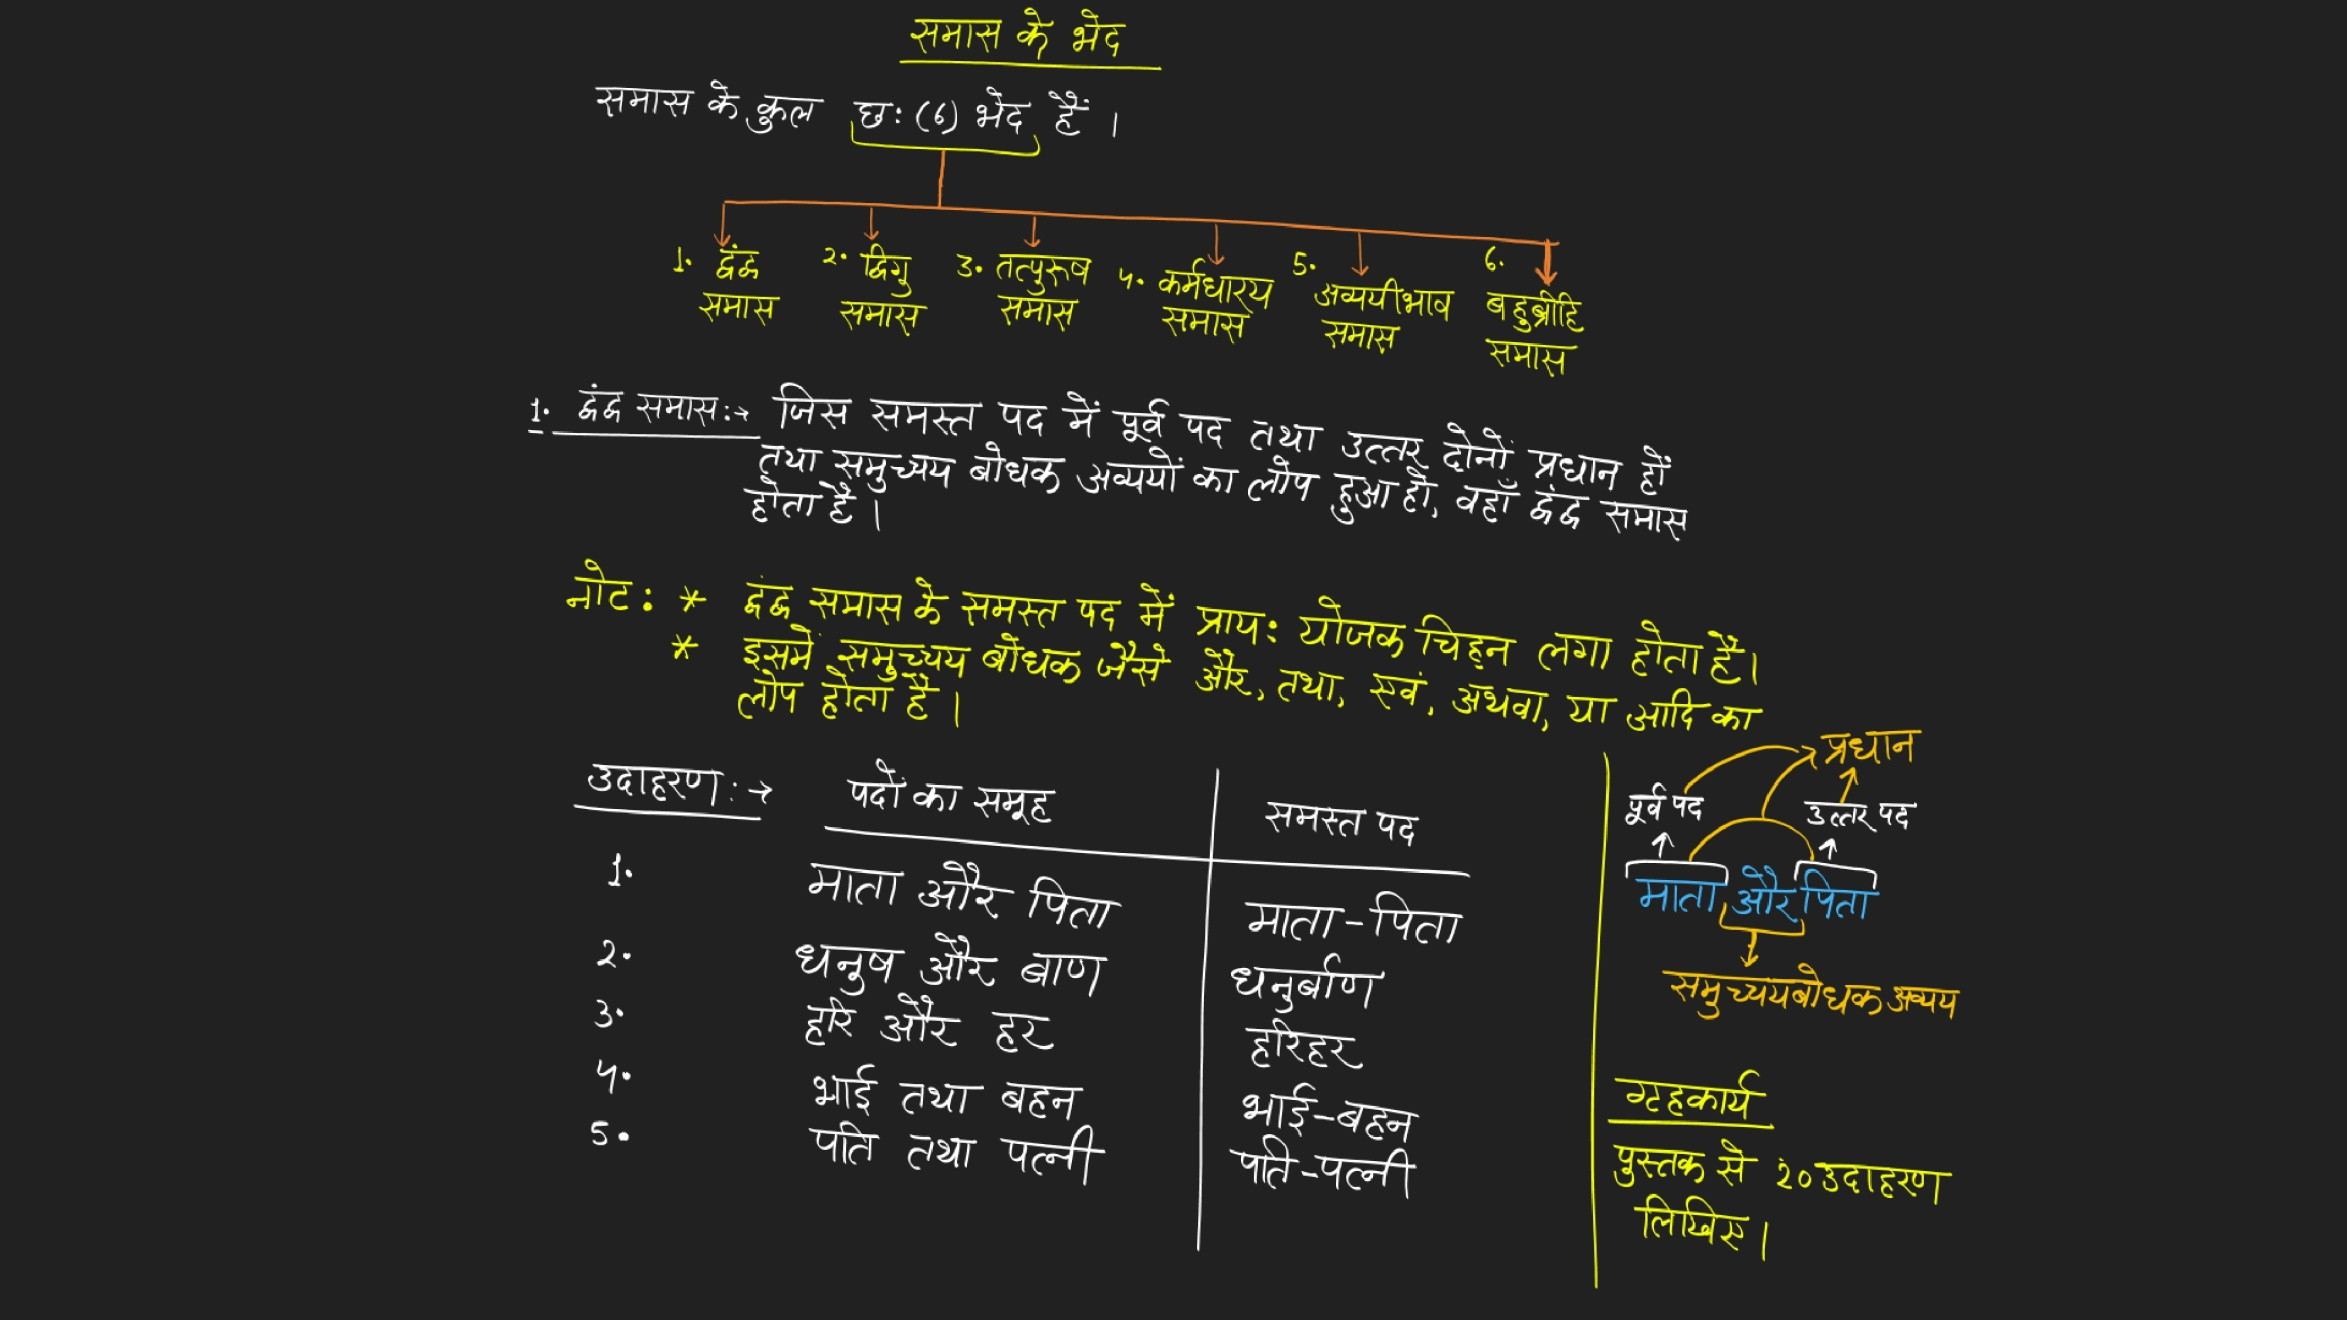 समास के भेद
समास के कुल छः (6) भेद हैं ।
1. द्वंद्व समास
2. द्विगु समास
3. तत्पुरूष समास
4. कर्मधारय समास
5. अव्ययीभाव समास
6. बहुब्रीहि समास
1. द्वंद्व समासः→ जिस समस्त पद में पूर्व पद तथा उत्तर दोनों प्रधान हों
तथा समुच्चय बोधक अव्ययों का लोप हुआ हो, वहाँ द्वंद्व समास
होता है ।
नोट: * द्वंद्व समास के समस्त पद में प्रायः योजक चिह्न लगा होता है।
* इसमें समुच्चय बोधक जैसे और, तथा, एवं, अथवा, या आदि का
लोप होता है ।
उदाहरण:→ पदों का समूह समस्त पद
1. माता और पिता माता-पिता
2. धनुष और बाण धनुर्बाण
3. हरि और हर हरिहर
4. भाई तथा बहन भाई-बहन
5. पति तथा पत्नी पति-पत्नी
प्रधान
पूर्व पद उत्तर पद
माता और पिता
समुच्चयबोधक अव्यय
गृहकार्य
पुस्तक से 20 उदाहरण
लिखिए ।